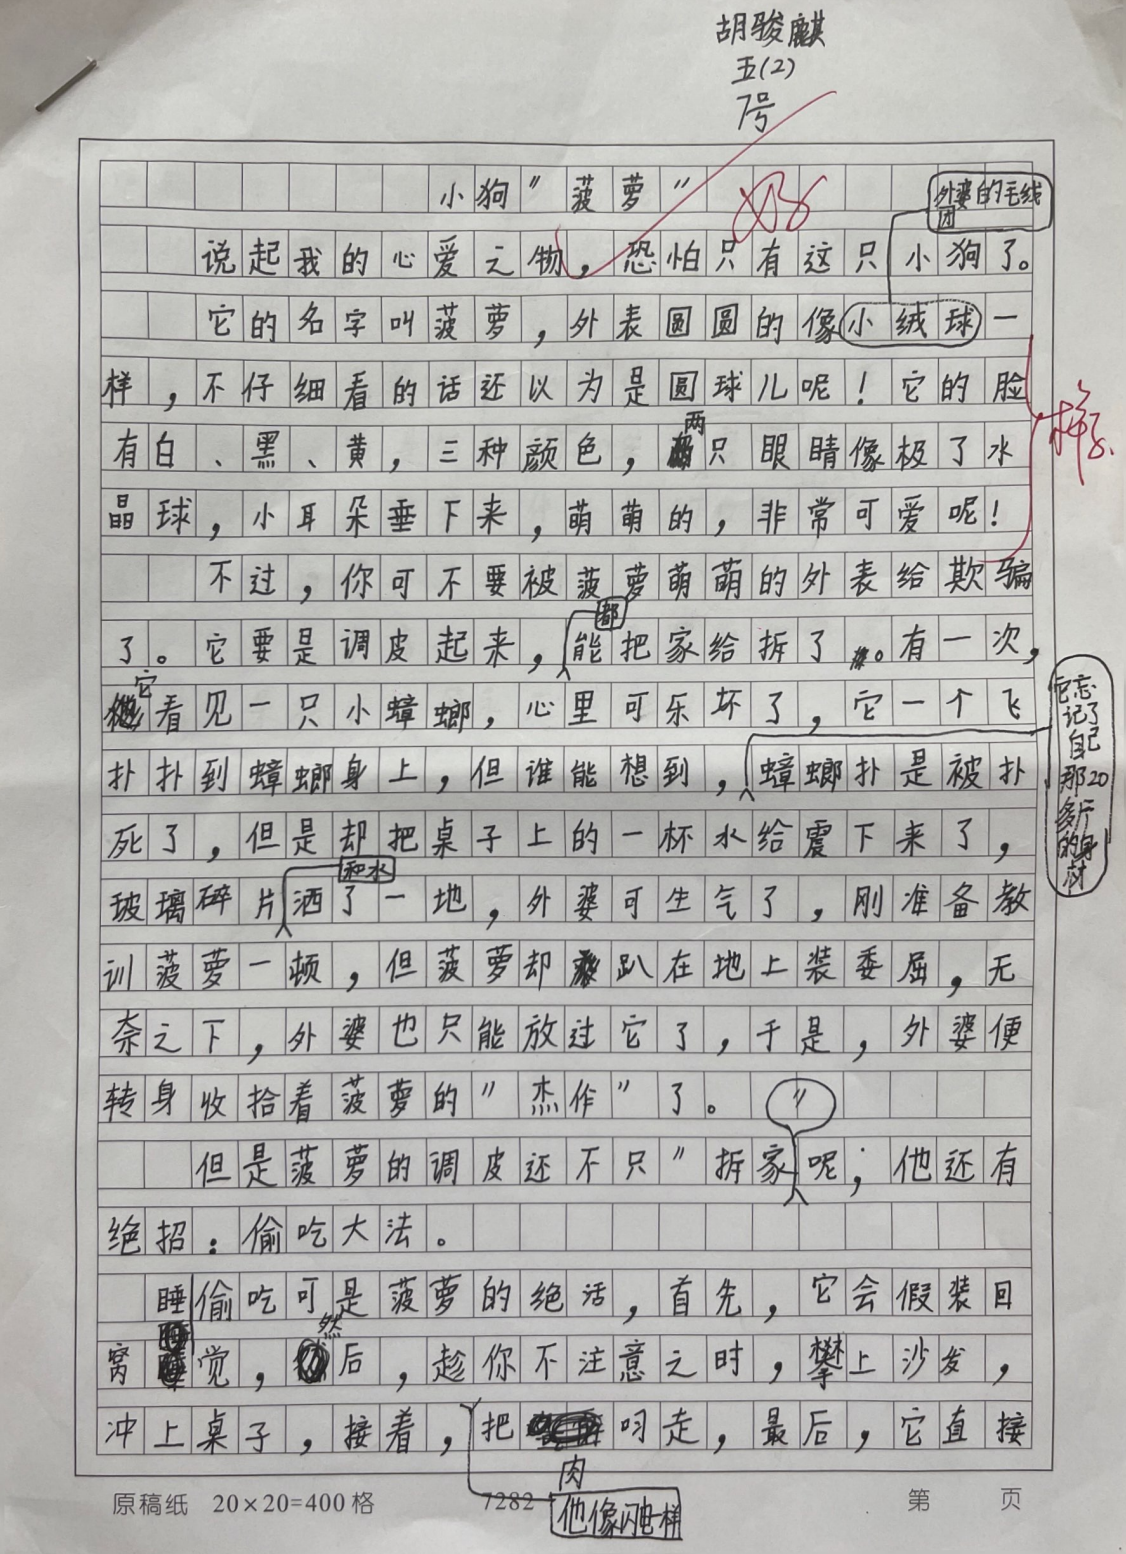 胡骏麒
五(2)
7号
小狗"菠萝"
好
外婆的毛线
团
说起我的心爱之物，恐怕只有这只小狗了。
它的名字叫菠萝，外表圆圆的像小绒球一
样，不仔细看的话还以为是圆球儿呢！它的脸
样子
有白、黑、黄，三种颜色，两只眼睛像极了水
晶球，小耳朵垂下来，萌萌的，非常可爱呢！
不过，你可不要被菠萝萌萌的外表给欺骗
都
了。它要是调皮起来，能把家给拆了。有一次，
它看见一只小蟑螂，心里可乐坏了，它一个飞
它忘
记了
自己
那20
多斤
的身
材
扑扑到蟑螂身上，但谁能想到，蟑螂扑是被扑
死了，但是却把桌子上的一杯水给震下来了，
和水
玻璃碎片洒了一地，外婆可生气了，刚准备教
训菠萝一顿，但菠萝却趴在地上装委屈，无
奈之下，外婆也只能放过它了，于是，外婆便
转身收拾着菠萝的"杰作"了。
但是菠萝的调皮还不只"拆家"呢；他还有
绝招：偷吃大法。
偷吃可是菠萝的绝活，首先，它会假装回
窝睡觉，然后，趁你不注意之时，攀上沙发，
冲上桌子，接着，把肉叼走，最后，它直接
他像闪电一样
原稿纸 20×20=400格 7282 第 页